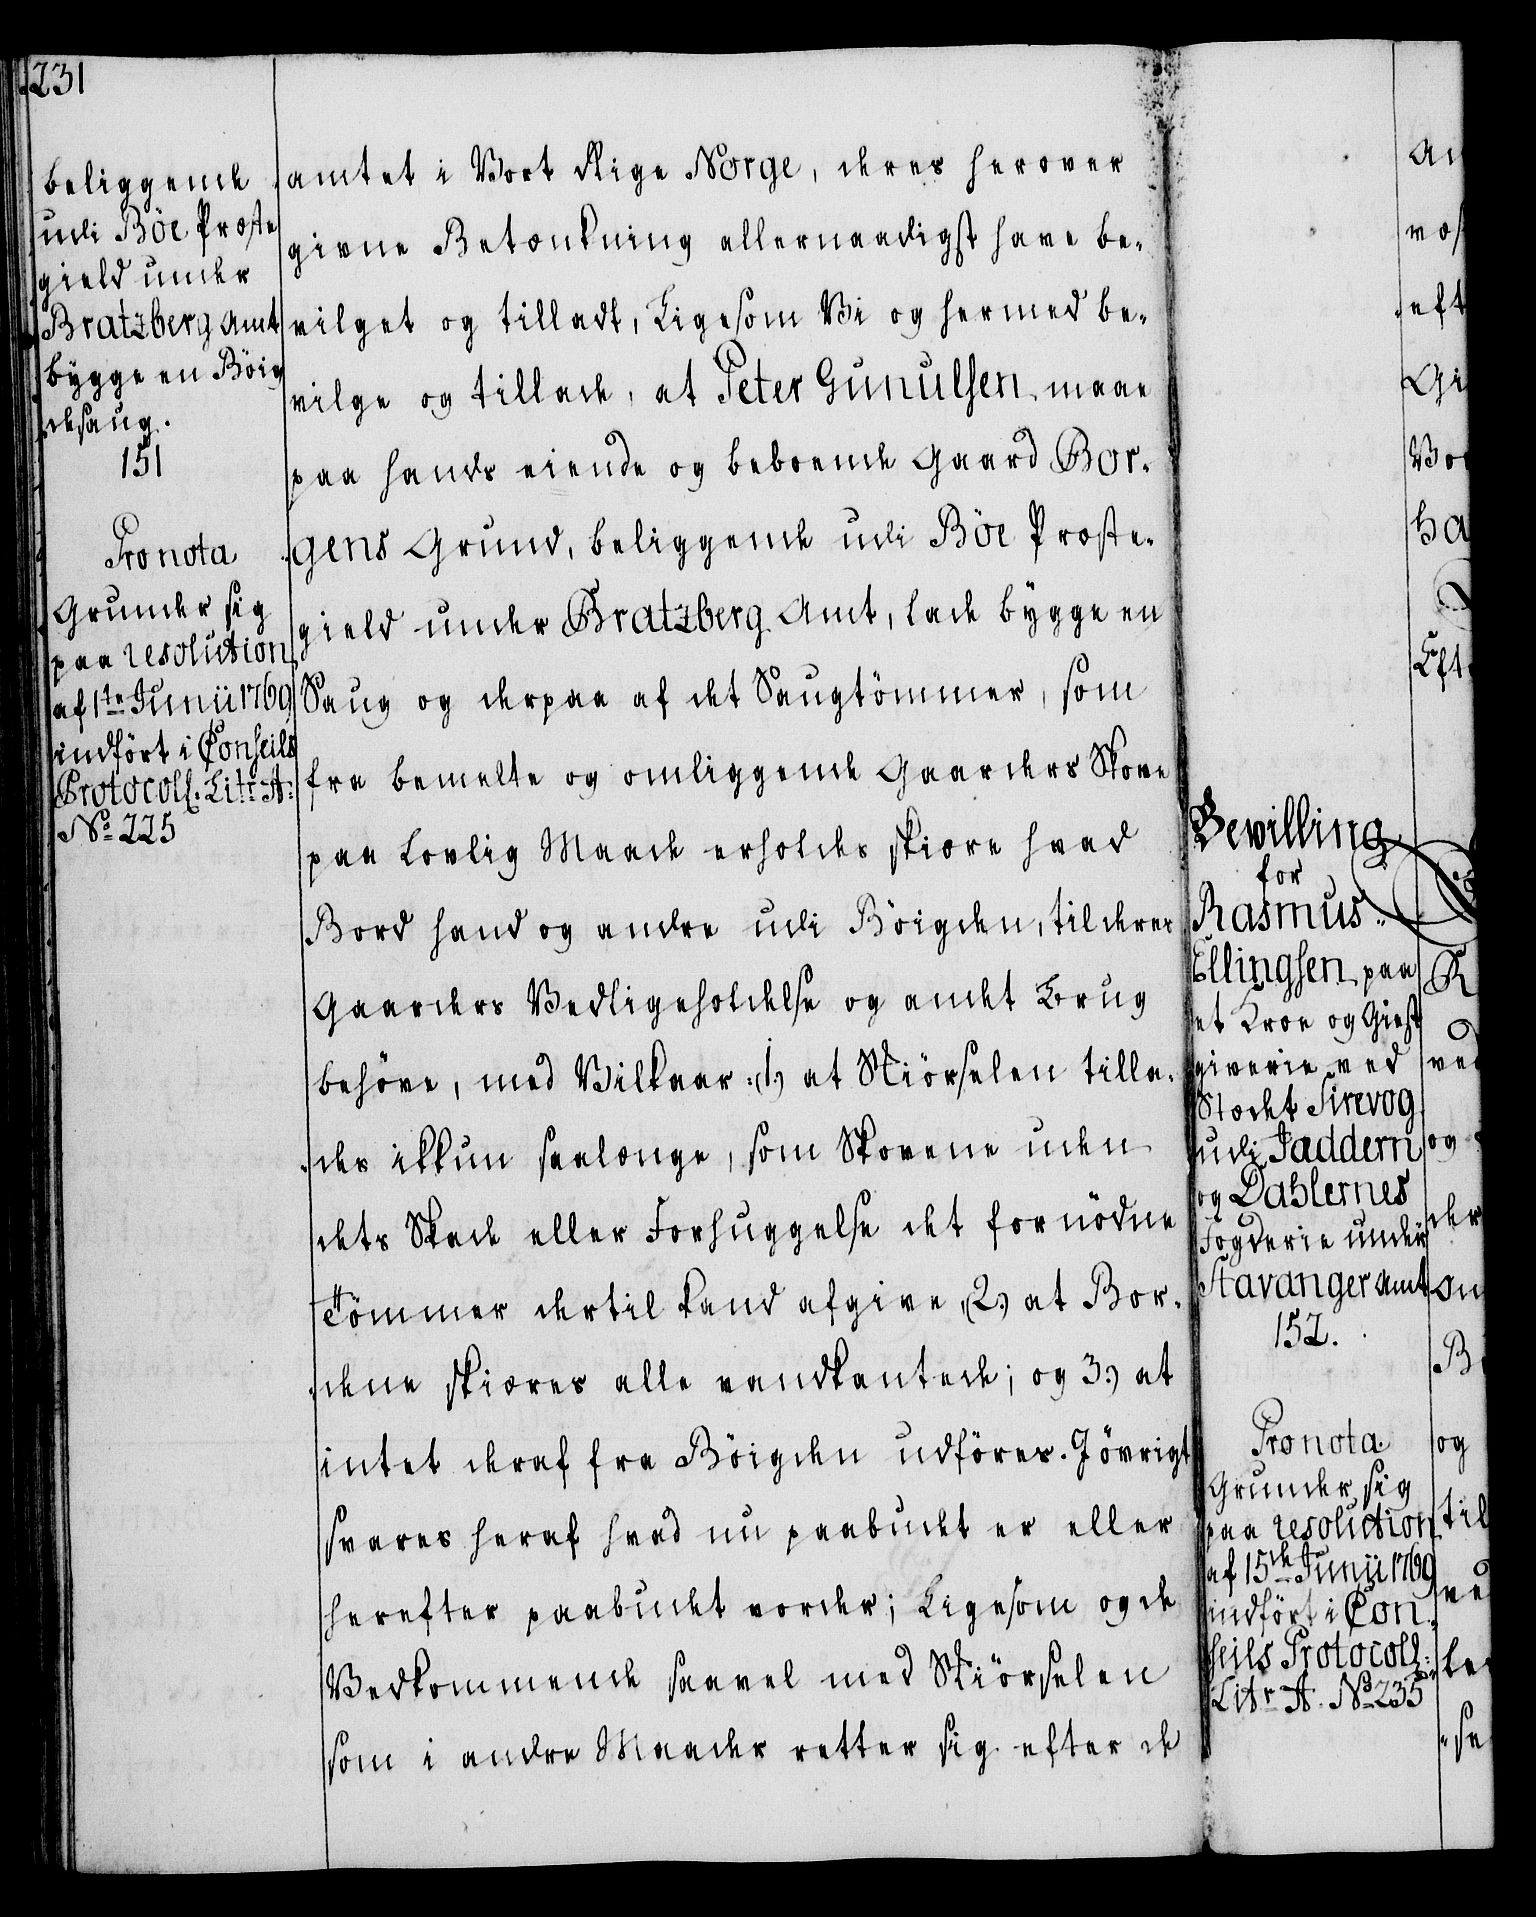 231
beliggende
udi Böe Præste
gield under
Bratzberg Amt
bygge en Böig
desaug.
151
Pro nota
Grunder sig
paa resolution
af 1te Junii 1769
indfört i Conseils
Protocoll. Litr. A:
No 225
amtet i Vort Rige Norge, deres herover
givne Betænkning allernaadigst have be-
vilget og tilladt, Ligesom Vi og hermed be-
vilge og tillade, at Peter Gunulsen maae
paa hands eiende og beboende Gaard Bor-
gens Grund, beliggende udi Böe Præste-
gield under Bratzberg Amt, lade bygge en
Saug og derpaa af det Saugtömmer, som
fra bemelte og omliggende Gaarders Skove
paa Lovlig Maade erholdes skiære hvad
Bord hand og andre udi Böigden, til deres
Gaarders Vedligeholdelse og andet Brug
behöve, med Vilkaar: 1.) at Skiörselen tilla-
des ikkun saalænge, som Skovene uden
dets Skade eller Forhuggelse det fornödne
Tömmer dertil kand afgive, 2.) at Bor-
dene skiæres alle vandkantede; og 3.) at
intet deraf fra Böigden udföres. I övrigt
svares heraf hvad nu paabudet er eller
herefter paabudet vorder; Ligesom og de
Vedkommende saavel med Skiörselen
som i andre Maader retter sig efter de
Bewilling
for
Rasmus
Ellingsen paa
et Kroe og Giest
giverie ved
Stædet Sirevog
udi Jaddern
og Dahlernes
Fogderie under
Stavanger Amt
152.
Pro nota.
Grunder sig
paa resolution
af 15de Junii 1769
indfört i Con
seils Protocoll:
Litr A. No 235